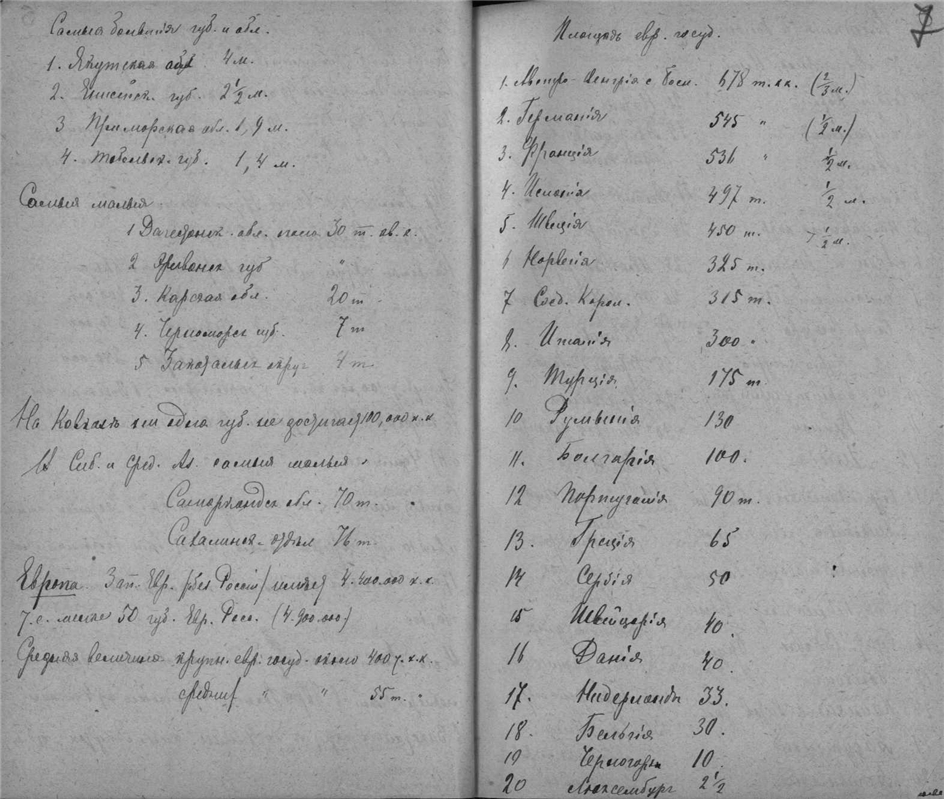 Самыя большія губ. и обл.
1. Якутская обл 4 м.
2. Енисейск. губ. 2 1/2 м.
3 Приморская обл. 1,9 м.
4. Тобольск. губ. 1,4 м.
Самыя малыя
1 Дагестанск. обл. около 30 т. кв. к.
2 Эриванск губ "
3. Карская обл. 20 т
4. Черноморск губ. 7 т
5 Закатальск округ 4 т.
На Кавказѣ ни одна губ. не достигает 100,000 к.к
В Сиб. и Сред. Аз. самыя малыя
Самаркандск обл. 70 т.
Сахалинск. отдѣл 76 т.
Европа Зап. Евр. (без Россіи) имѣет 4.400.000 к.к.
Т.е. менѣе 50 губ. Евр. Росс. (4.900.000)
Средняя величина крупн. евр. госуд. около 400 т. к.к.
средних " " 55 т.
7
Площадь евр. госуд.
1. Австро-Венгрія с Босн. 678 т. кк. (2/3 м.)
2. Германія 545 " (1/2 м.)
3. Франція 536 " 1/2 м.
4. Испанія 497 т. 1/2 м.
5. Швеція 450 т. 1/2 м.
6 Норвегія 325 т.
7 Соед. Корол. 315 т.
8. Италія 300 "
9. Турція 175 т
10 Румынія 130
11. Болгарія 100.
12 Португалія 90 т.
13. Греція 65
14 Сербія 50
15 Швейцарія 40.
16 Данія 40.
17. Нидерланды 33.
18. Бельгія 30.
19 Черногорія 10.
20 Люксембург 2 1/2